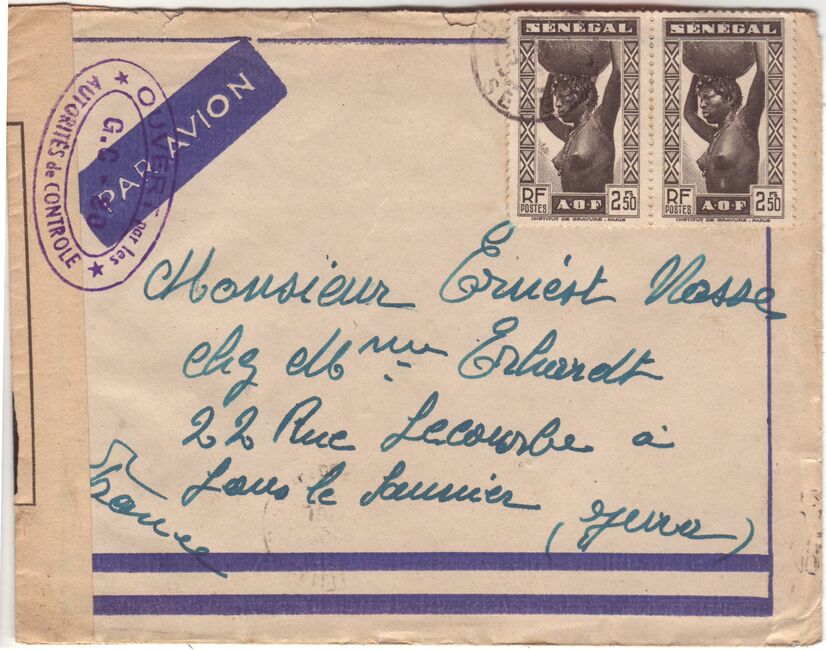 SÉNÉGAL
RF
POSTES
A·O·F
2F50
INSTITUT DE GRAVURE - PARIS
SÉNÉGAL
RF
POSTES
A·O·F
2F50
INSTITUT DE GRAVURE - PARIS
PAR AVION
OUVERT par les
AUTORITÉS de CONTRÔLE
Monsieur Ernést Nasse
chez Mme Erhardt
22 Rue Lecourbe à
Lons le Saunier
(Jura)
France